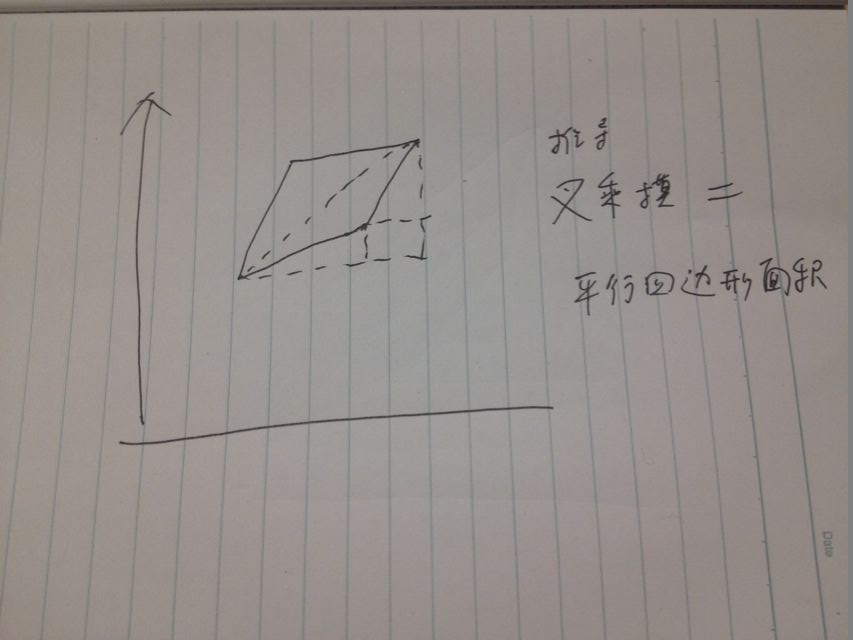 推导
叉乘模 =
平行四边形面积
Date